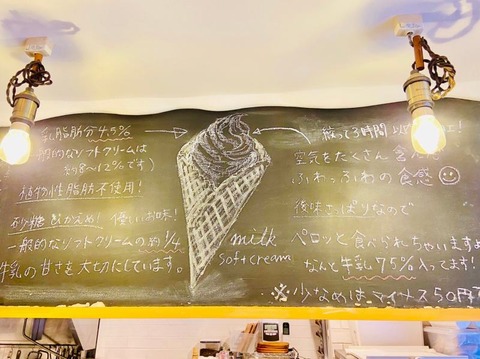 乳脂肪分4.5%
般的なソフトクリームは
約8~12%です)
植物性脂肪不使用!
砂糖 ひかえめ! 優しいお味!
一般的なソフトクリームの約1/4
牛乳の甘さを大切にしています。
milk
softcream
絞って3時間以内
空気をたくさん含んだ
ふわっふわの食感
後味さっぱりなので
ペロッと食べられちゃいますよ
なんと牛乳75%入ってます!
※少なめはマイナス50円